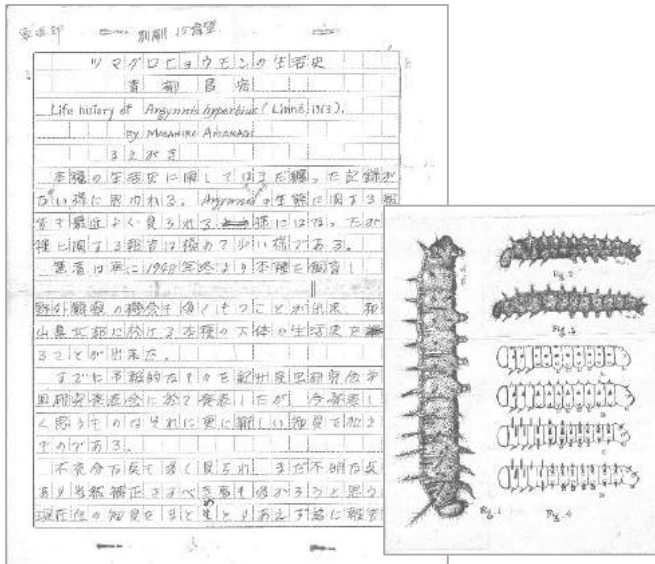 別刷 15 希望
ツマグロヒョウモンの生活史
青柳昌宏
Life history of Argynnis hyperbius (Linné, 1763).
by MASAHIRO AOYANAGI
まえがき
本種の生活史に関しては
ない様に思われる。Argynnisの生態に関する報
告も最近よく見られる様にはなったが
種に関する報告は極めて少い様である。
筆者は 1948年 より本種を飼育し
野外観察の機会も
山県 に於ける本種の大体の生活史を
ることが出来た。
すでに予報的なものを紀州昆虫研究会
研究発表会に於て発表したが、今
く思うものはそれに更に新しい知見を加え
ものである。
不充分な点も多く見られ、まだ不明な点
あり当然補正さるべき
現在迄の知見をまとめ
Fig. 1
Fig. 2
Fig. 3
A
B
C
D
Fig. 4